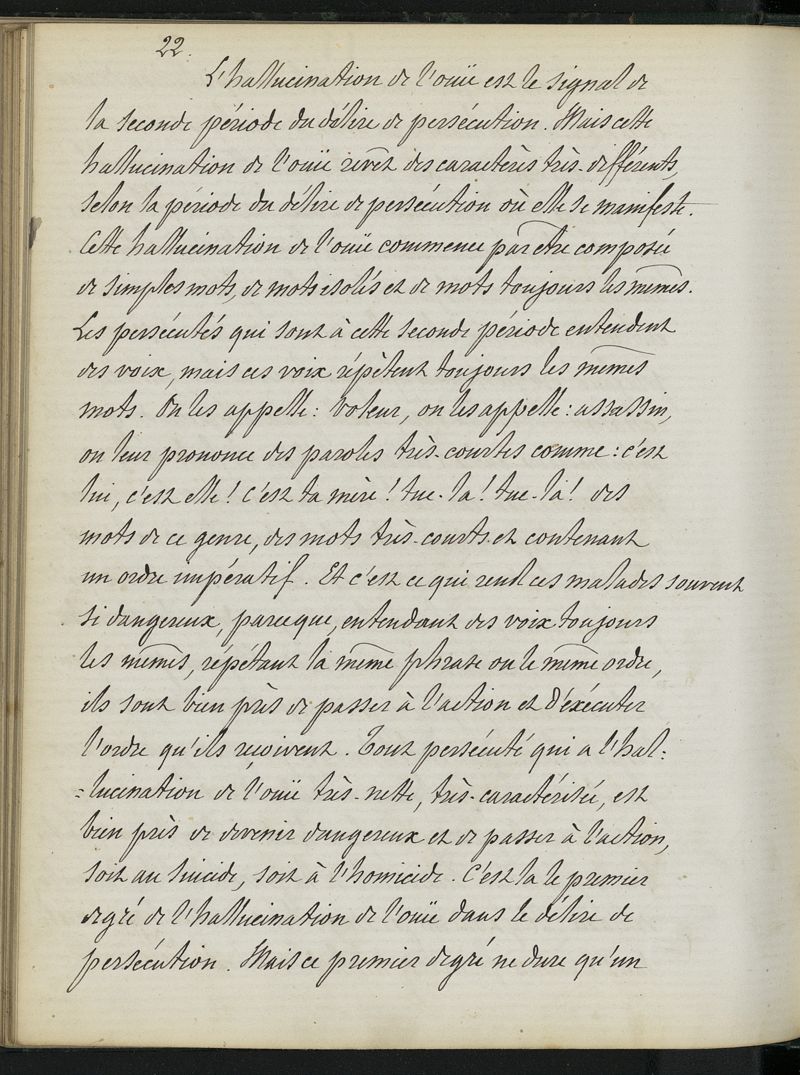 22.
L'hallucination de l'ouïe est le signal de
la seconde période du délire de persécution. Mais cette
hallucination de l'ouïe revêt des caractères très-différents,
selon la période du délire de persécution où elle se manifeste.
Cette hallucination de l'ouïe commence par être composée
de simples mots, de mots isolés et de mots toujours les mêmes.
Les persécutés qui sont à cette seconde période entendent
des voix, mais ces voix répètent toujours les mêmes
mots. On les appelle: voleur, on les appelle: assassin,
on leur prononce des paroles très-courtes comme: c'est
lui, c'est elle! C'est ta mère! tue-la! tue-là! des
mots de ce genre, des mots très-courts et contenant
un ordre impératif. Et c'est ce qui rend ces malades souvent
si dangereux, parceque, entendant des voix toujours
les mêmes, répétant la même phrase ou le même ordre,
ils sont bien près de passer à l'action et d'éxécuter
l'ordre qu'ils reçoivent. Tout persécuté qui a l'hal=
=lucination de l'ouïe très-nette, très-caractérisée, est
bien près de devenir dangereux et de passer à l'action,
soit au suicide, soit à l'homicide. C'est la le premier
degré de l'hallucination de l'ouïe dans le délire de
persécution. Mais ce premier degré ne dure qu'un